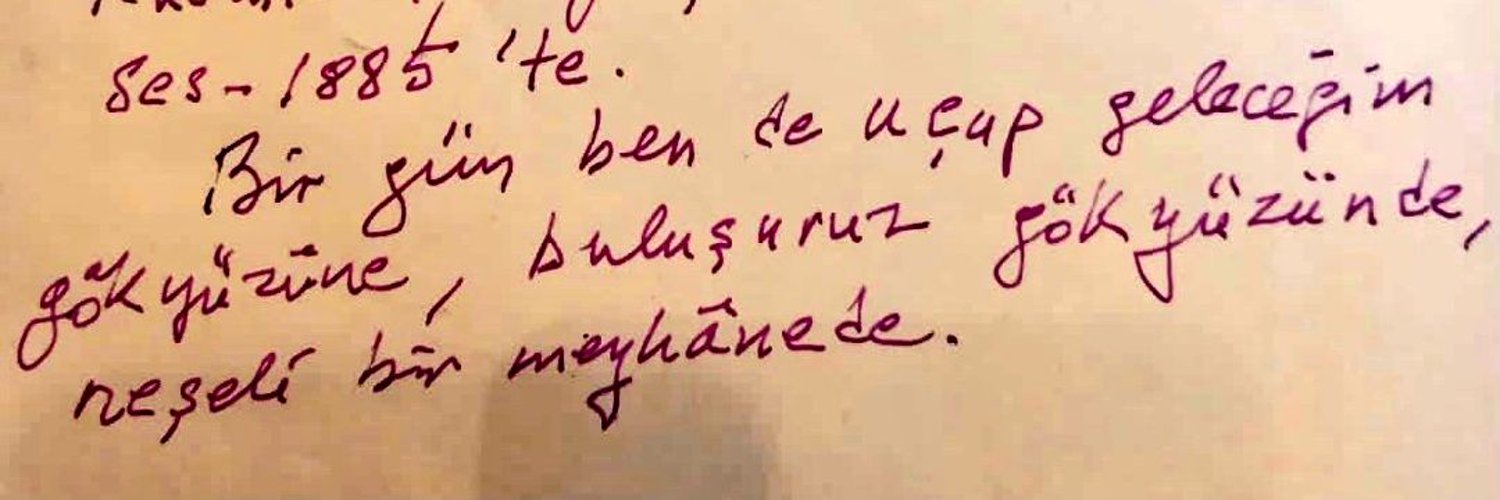 Ses-1885'te.
Bir gün ben de uçup geleceğim
gökyüzüne, buluşuruz gökyüzünde,
neşeli bir meyhânede.